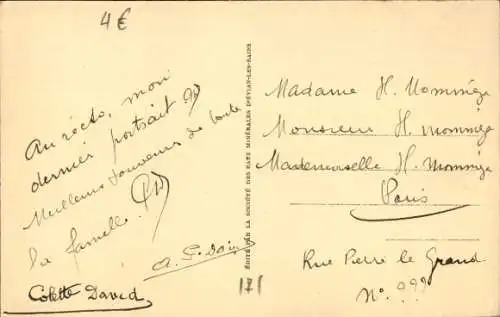 4€
Au recto, mon
dernier portrait
Meilleurs souvenirs de toute
la famille.
Colette David
ÉDITÉ PAR LA SOCIÉTÉ DES EAUX MINÉRALES D'ÉVIAN-LES-BAINS
171
Madame H. Mommége
Monsieur H. Mommége
Mademoiselle H. Mommége
Paris
Rue Pierre le Grand
N° 999